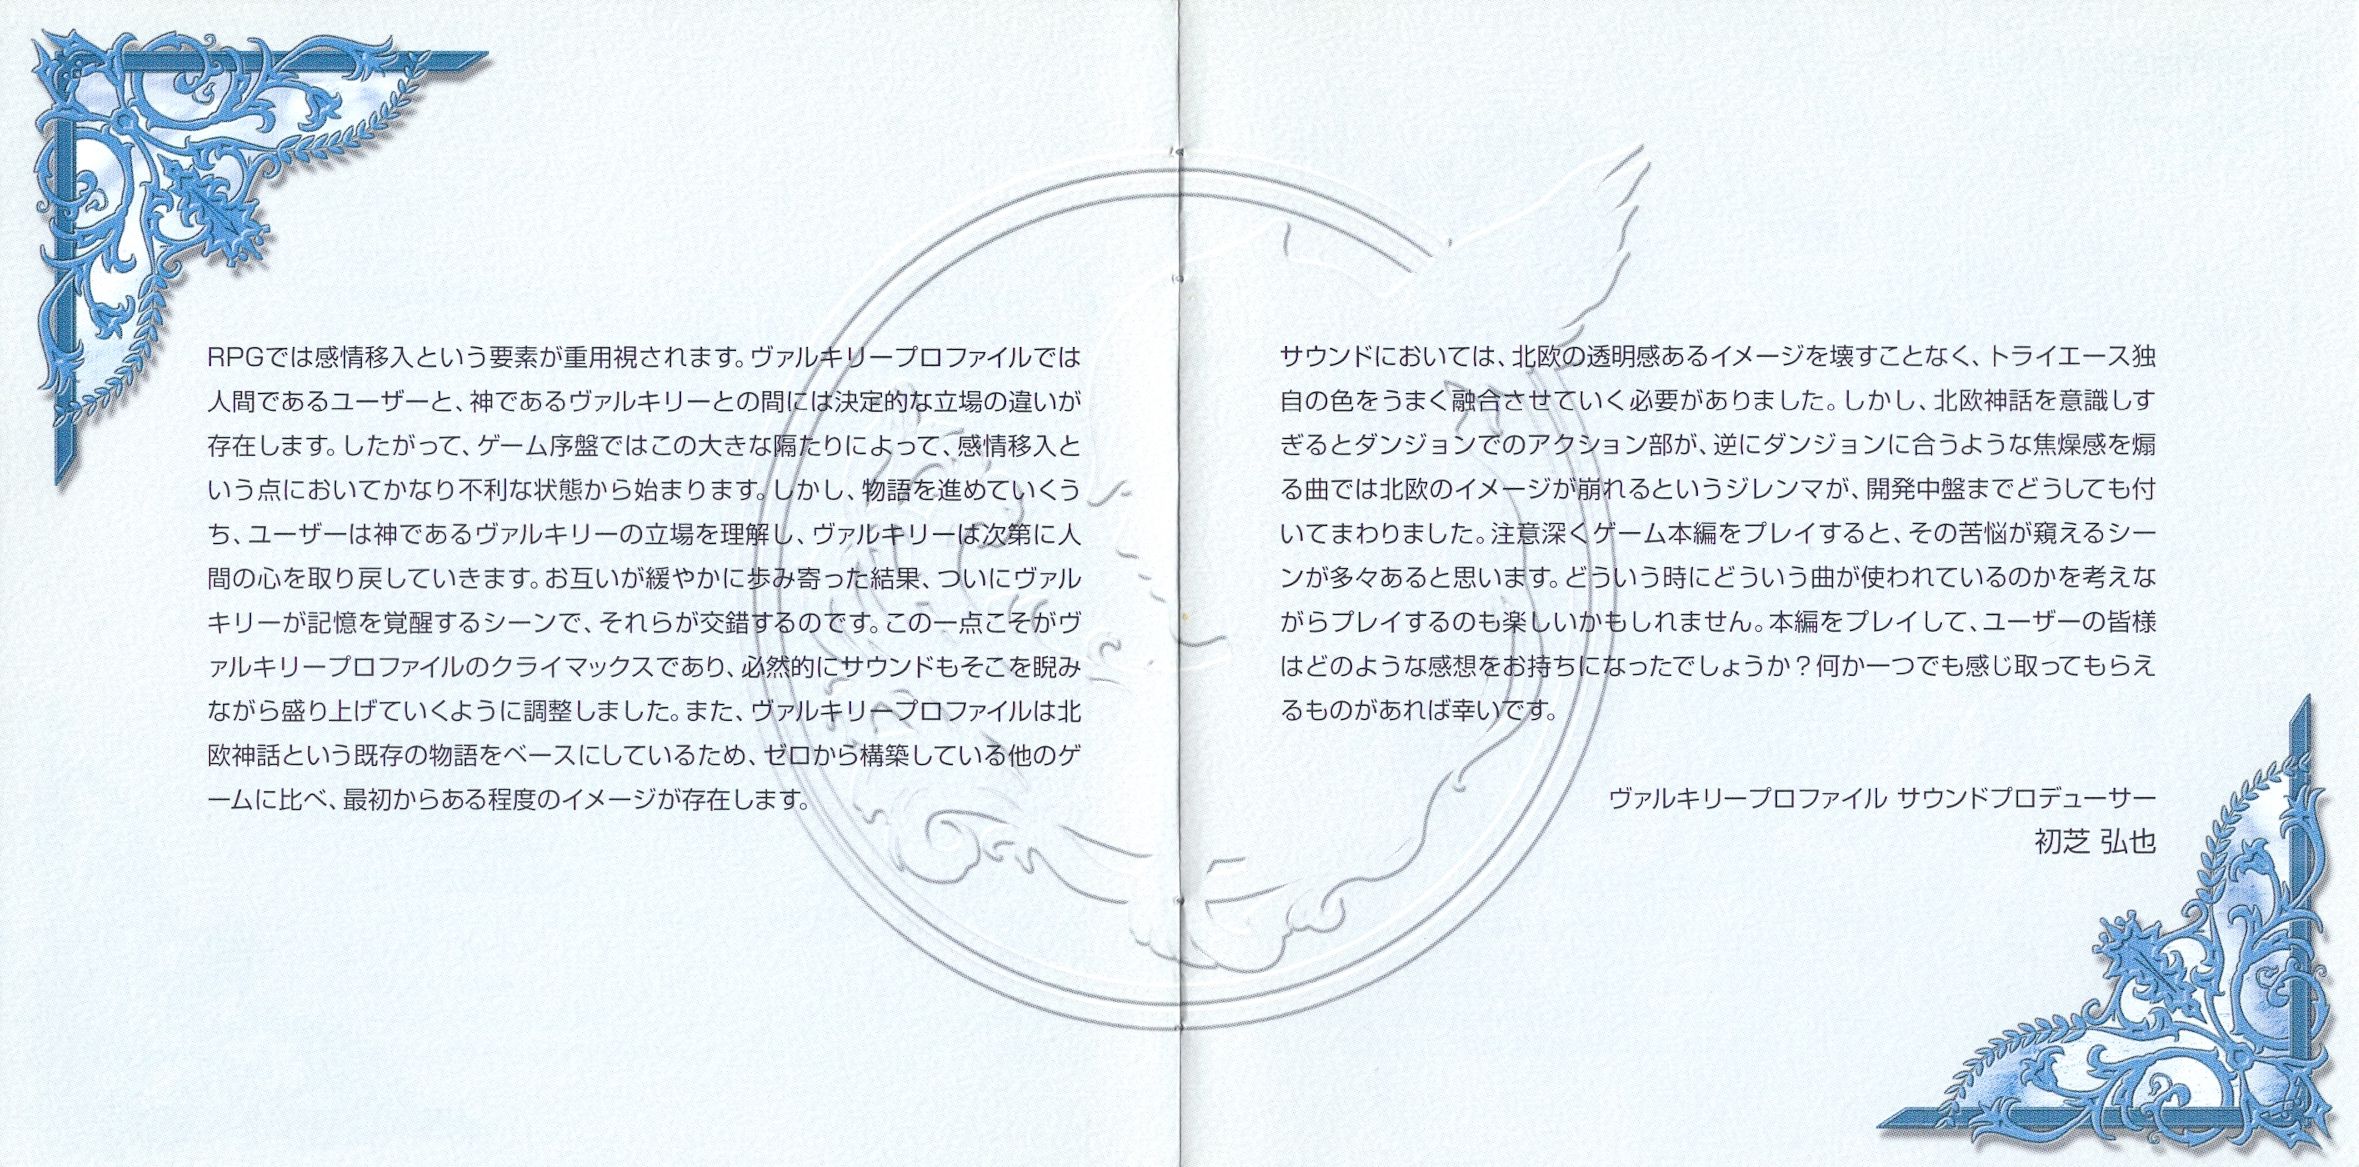 RPGでは感情移入という要素が重用視されます。ヴァルキリープロファイルでは
人間であるユーザーと、神であるヴァルキリーとの間には決定的な立場の違いが
存在します。したがって、ゲーム序盤ではこの大きな隔たりによって、感情移入と
いう点においてかなり不利な状態から始まります。しかし、物語を進めていくう
ち、ユーザーは神であるヴァルキリーの立場を理解し、ヴァルキリーは次第に人
間の心を取り戻していきます。お互いが緩やかに歩み寄った結果、ついにヴァル
キリーが記憶を覚醒するシーンで、それらが交錯するのです。この一点こそがヴ
ァルキリープロファイルのクライマックスであり、必然的にサウンドもそこを睨み
ながら盛り上げていくように調整しました。また、ヴァルキリープロファイルは北
欧神話という既存の物語をベースにしているため、ゼロから構築している他のゲ
ームに比べ、最初からある程度のイメージが存在します。
サウンドにおいては、北欧の透明感あるイメージを壊すことなく、トライエース独
自の色をうまく融合させていく必要がありました。しかし、北欧神話を意識しす
ぎるとダンジョンでのアクション部が、逆にダンジョンに合うような焦燥感を煽
る曲では北欧のイメージが崩れるというジレンマが、開発中盤までどうしても付
いてまわりました。注意深くゲーム本編をプレイすると、その苦悩が窺えるシー
ンが多々あると思います。どういう時にどういう曲が使われているのかを考えな
がらプレイするのも楽しいかもしれません。本編をプレイして、ユーザーの皆様
はどのような感想をお持ちになったでしょうか？何か一つでも感じ取ってもらえ
るものがあれば幸いです。
ヴァルキリープロファイル サウンドプロデューサー
初芝 弘也